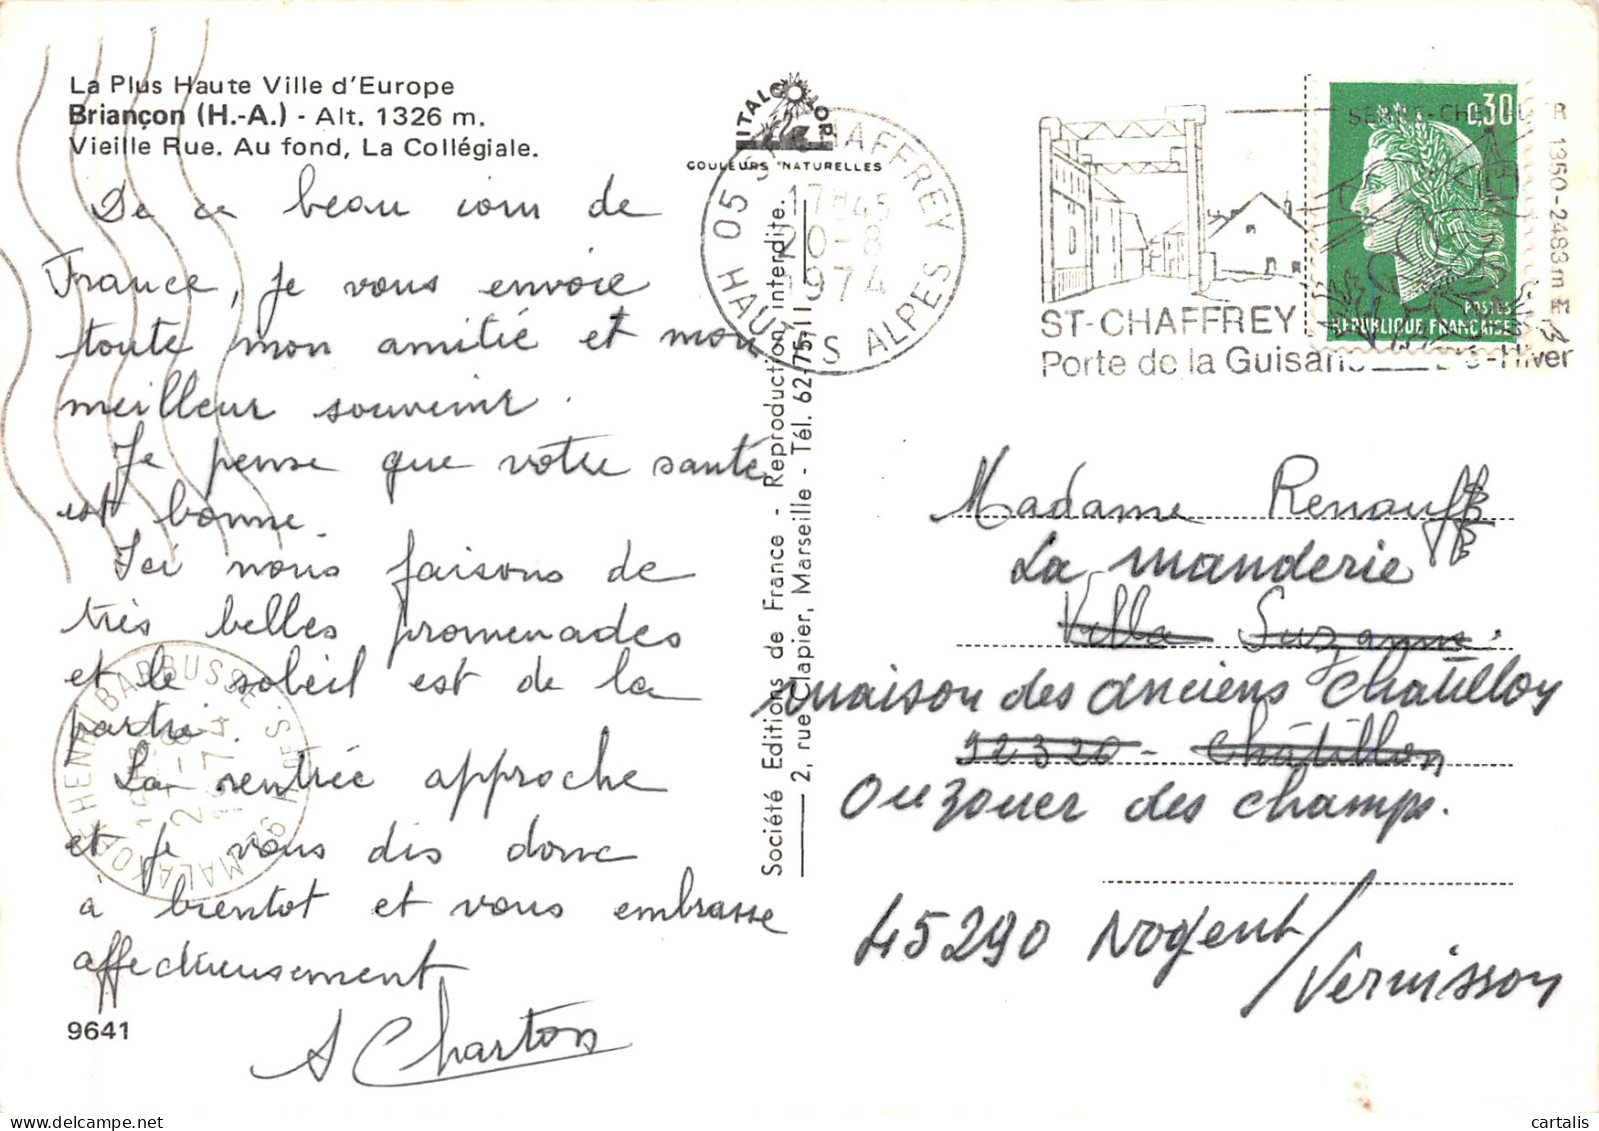 La Plus Haute Ville d'Europe
Briançon (H.-A.) - Alt. 1326 m.
Vieille Rue. Au fond, La Collégiale.
De ce beau coin de
France, je vous envoie
toute mon amitié et mon
meilleur souvenir.
Je pense que votre santé
est bonne.
Ici nous faisons de
très belles promenades
et le soleil est de la
partie.
La rentrée approche
et je vous dis donc
à bientot et vous embrasse
affectueusement
A Charton
9641
ITALCOLOR
COULEURS NATURELLES
Société Editions de France - Reproduction interdite.
2, rue Clapier, Marseille - Tél. 62-75-11
05 ST CHAFFREY
17H45
20-8
1974
HAUTES ALPES
SERRE-CHEVALIER 1350-2483m
ST-CHAFFREY
Porte de la Guisane Été-Hiver
0,30
POSTES
REPUBLIQUE FRANÇAISE
Madame Renauff
La manderie
Villa Suzanne.
maison des anciens Chatillon
92320 - Châtillon
Ouzouer des champs.
45290 Nogent/
Vernisson
MALAKOFF HENRI BARBUSSE
H. DE SEINE
92
1974
cartalis